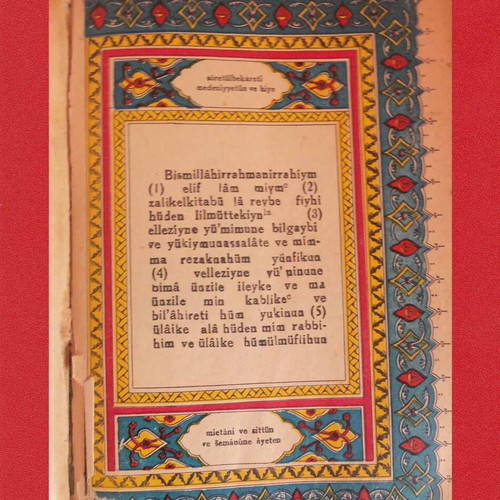 sûretülbekareti
medeniyyetün ve hiye
Bismillâhirrahmanirrahiym
(1) elif lâm miymᵉ (2)
zalikelkitabü lâ reybe fiyhi
hüden lilmüttekiynⁱⁿ (3)
elleziyne yü'minune bilgaybi
ve yükiymunassalâte ve mim-
ma rezaknahüm yünfikun
(4) velleziyne yü'minune
bimâ ünzile ileyke ve ma
ünzile min kablikeᶜ ve
bil'âhireti hüm yukinun (5)
ülâike alâ hüden mim rabbi-
him ve ülâike hümülmüflihun
mietâni ve sittün
ve šemânûne âyeten